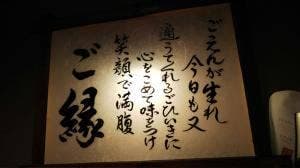 ごえんが生れ
今日も又
通うてくれるごひいきに
心をこめて味をつけ
笑顔で満腹
ご縁